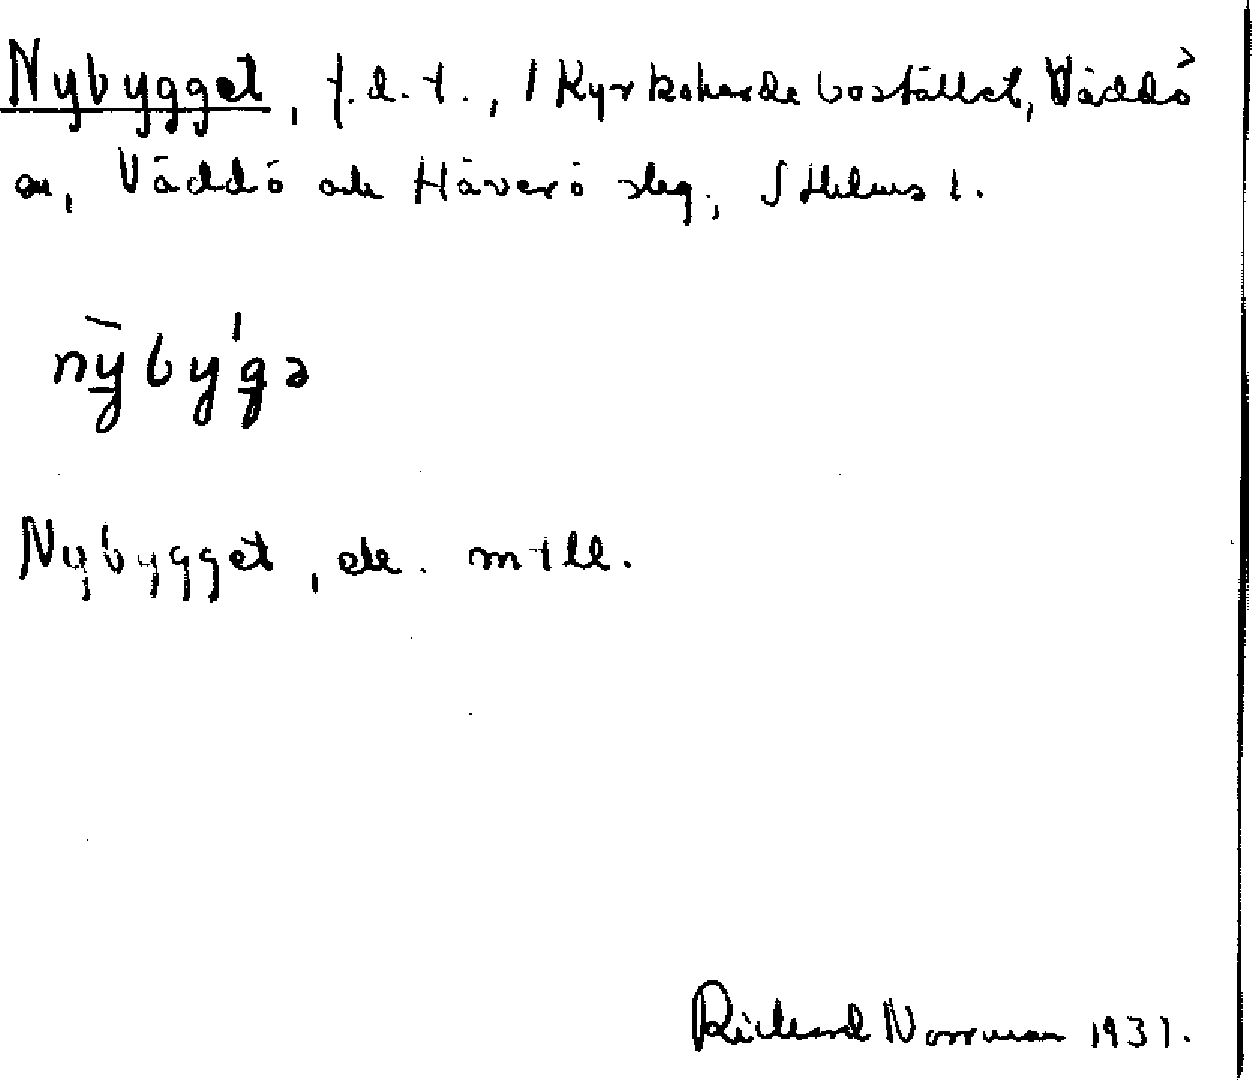 Nybygget, f.d. t., 1 Kyrkoherdebostället, Väddö
sn, Väddö och Häverö slag., Sthlms l.
nȳbýgə
Nybygget, ek. m + ll.
Richard Norrman 1937.